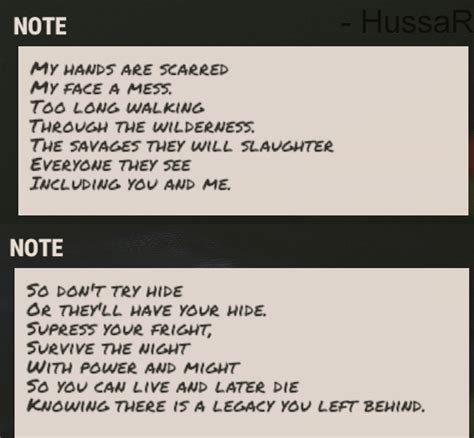 - HussaR
NOTE
My hands are scarred
My face a mess.
Too long walking
Through the wilderness.
The savages they will slaughter
Everyone they see
Including you and me.
NOTE
So don't try hide
Or they'll have your hide.
Supress your fright,
Survive the night
With power and might
So you can live and later die
Knowing there is a legacy you left behind.